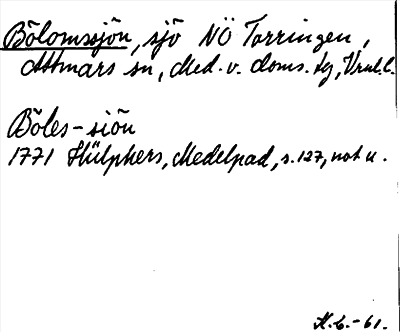 Bölomssjön, sjö NÖ Torringen,
Attmars sn, Med. v. doms. tg, Vrnl. l.
Böles-siön
1771 Hülphers, Medelpad, s. 127, not u.
H.G.-61.